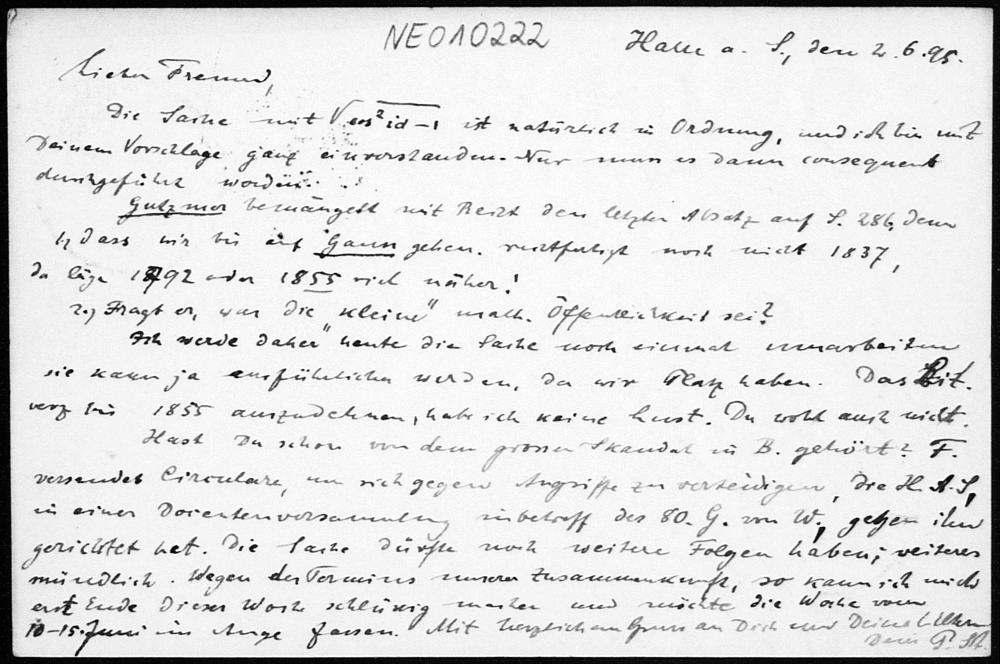 NEO10222
Halle a. S., den 2.6.95.
Lieber Freund,
Die Sache mit V ist natürlich in Ordnung, und ich bin mit
Deinem Vorschlage ganz einverstanden. Nur muss es dann consequent
durchgeführt werden.
Gutzmer bemängelt mit Recht den letzten Absatz auf S. 286, denn
1.) dass wir bis auf Gauss gehen, rechtfertigt noch nicht 1837,
da läge 1792 oder 1855 viel näher!
2.) Fragt er, was die "kleine" math. Öffentlichkeit sei?
Ich werde daher heute die Sache noch einmal umarbeiten
sie kann ja ausführlicher werden, da wir Platz haben. Das Lit.
verz bis 1855 auszudehnen, habe ich keine Lust. Du wohl auch nicht.
Hast Du schon von dem grossen Skandal in B. gehört? F.
versendet Circulare, um sich gegen Angriffe zu verteidigen, die H. A. S,
in einer Docentenversammlung inbetreff des 80. G. von W., gegen ihn
gerichtet hat. Die Sache dürfte noch weitere Folgen haben; weiteres
mündlich. Wegen des Termins unserer Zusammenkunft, so kann ich mich
erst Ende dieser Woche schlüssig machen und möchte die Woche vom
10-15. Juni ins Auge fassen. Mit herzlichem Gruss an Dich und Deine l. Eltern
Dein P. St.